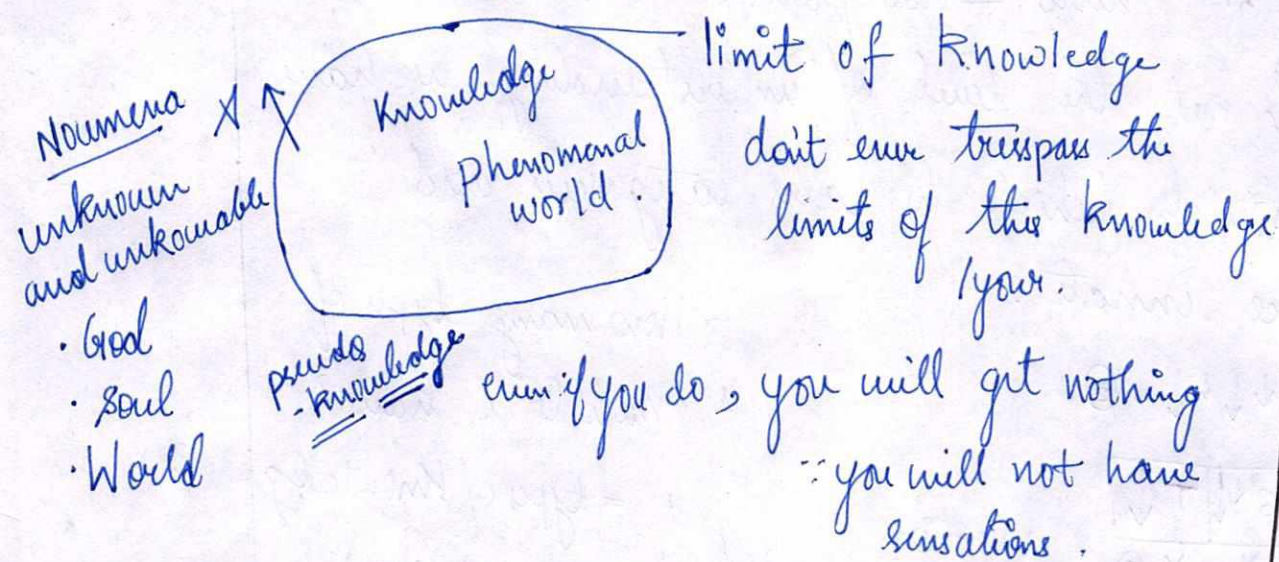 Noumena
unknown
and unkowable
· God
· Soul
· World
Knowledge
phenomenal
world.
pseudo
-knowledge
limit of Knowledge
don't ever trespass the
limits of this knowledge
/your.
even if you do, you will get nothing
∵ you will not have
sensations.